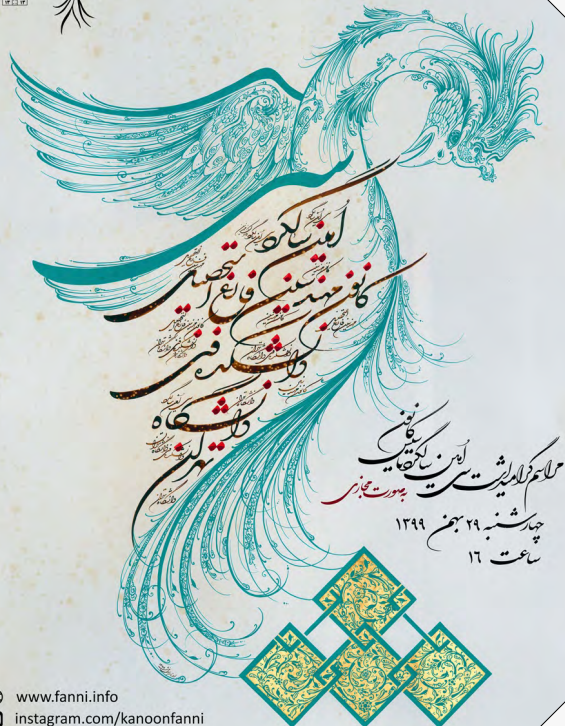 سی
اُمین سالگرد
کانون مهندسین فارغ التحصیل
دانشکده فنی
دانشگاه
تهران
مراسم گرامیداشت سی اُمین سالگرد تاسیس کانون
به صورت مجازی
چهارشنبه ۲۹ بهمن ۱۳۹۹
ساعت ۱۶
www.fanni.info
instagram.com/kanoonfanni